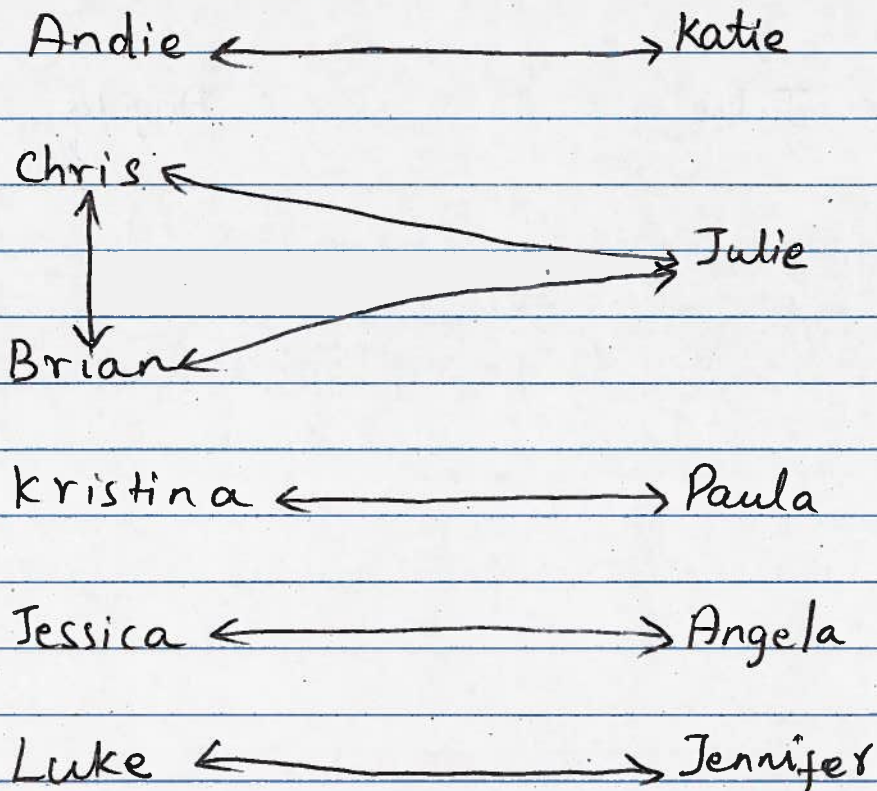 Andie Katie
Chris
Julie
Brian
Kristina Paula
Jessica Angela
Luke Jennifer